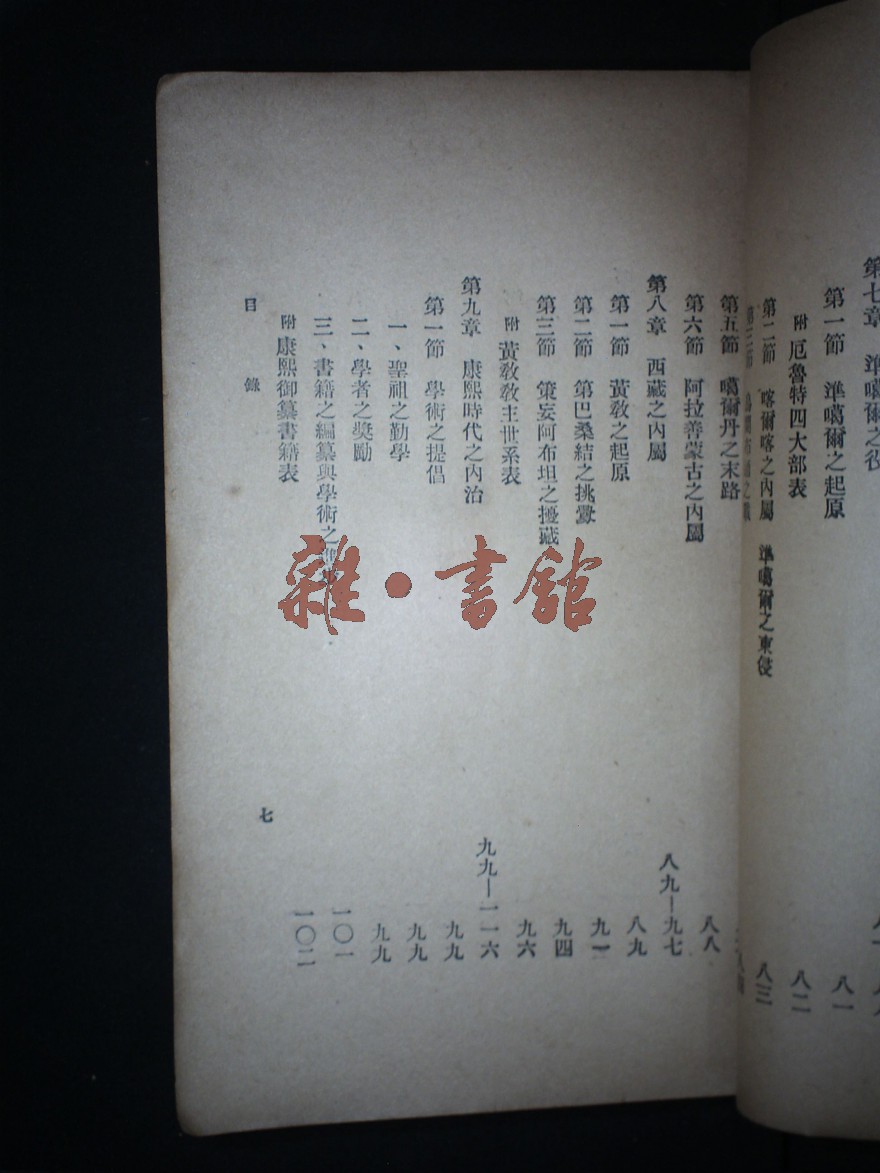 第七章 準噶爾之役
第一節 準噶爾之起原 八一
附 厄魯特四大部表 八二
第二節 喀爾喀之內屬 準噶爾之東侵 八三
第五節 噶爾丹之末路
第六節 阿拉善蒙古之內屬 八八
第八章 西藏之內屬 八九—九七
第一節 黃教之起原 八九
第二節 第巴桑結之挑釁 九一
第三節 策妄阿布坦之擾藏 九四
附 黃教教主世系表 九六
第九章 康熙時代之內治 九九—一一六
第一節 學術之提倡 九九
一、聖祖之勤學 九九
二、學者之獎勵 九九
三、書籍之編纂與學術之 一〇一
附 康熙御纂書籍表 一〇二
目 錄 七
雜·書館